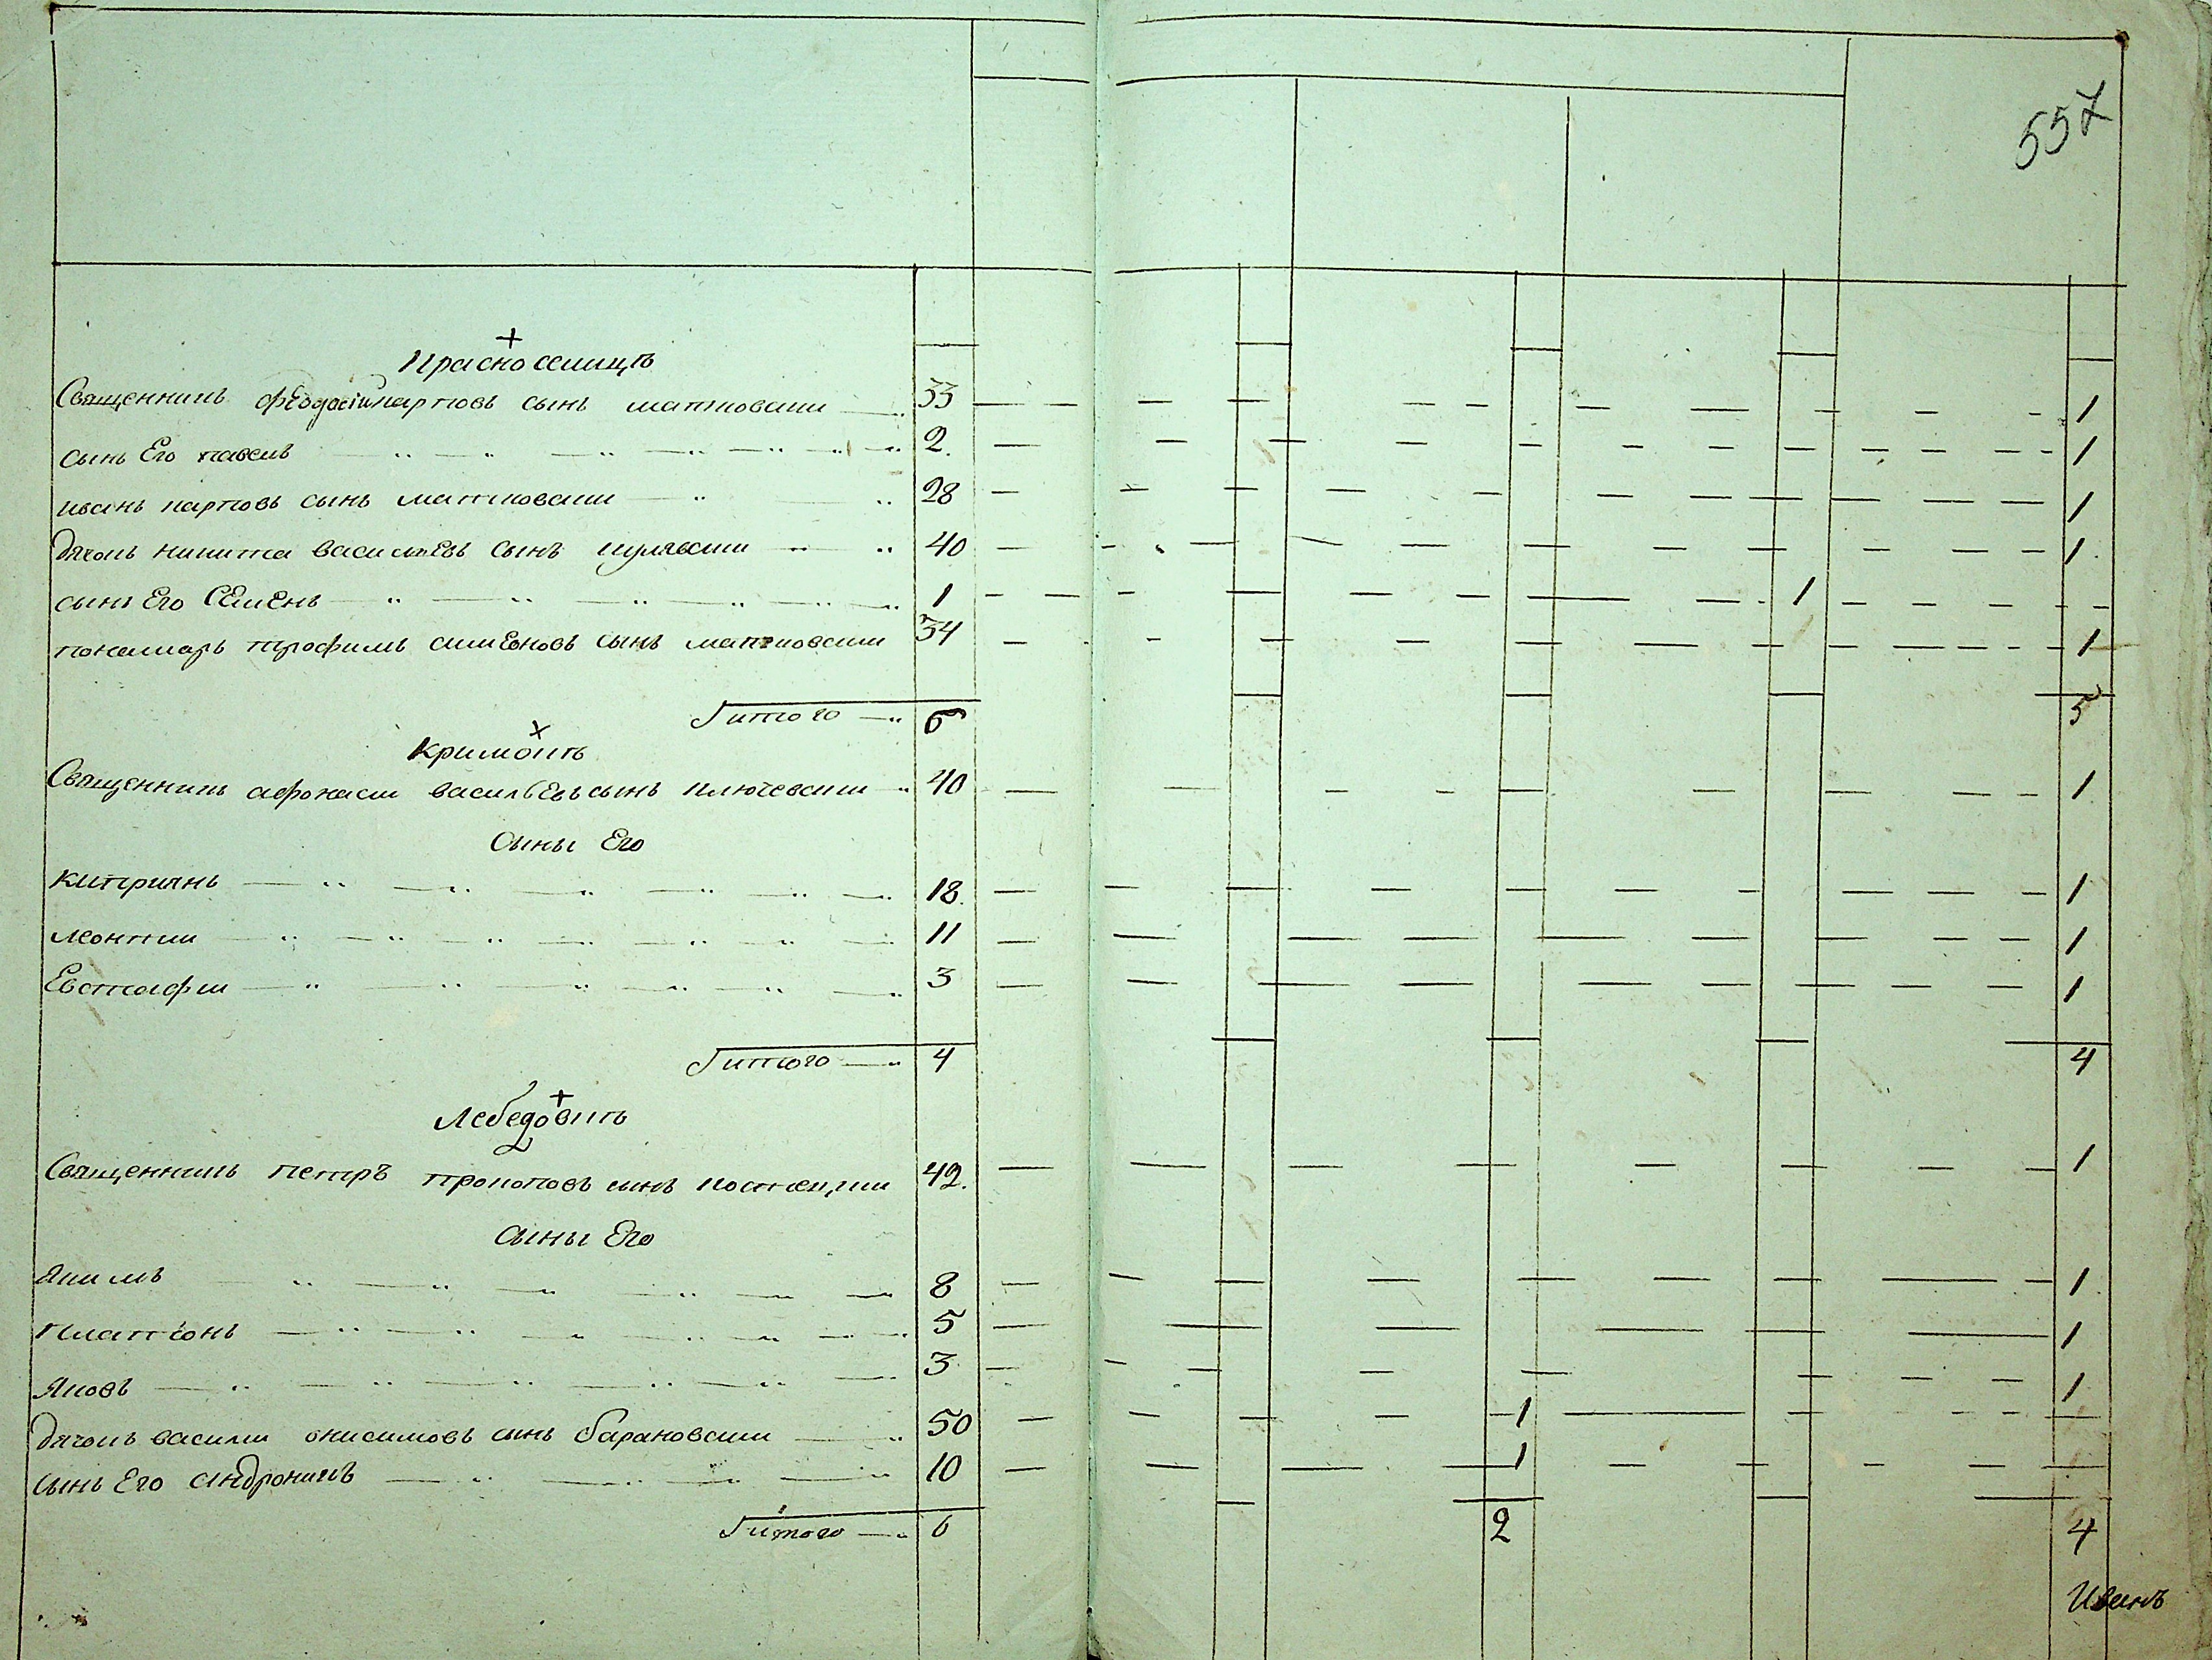 557
+
Красноселицѣ
Священникъ феодосій карповъ сынъ матковски 33 1
сынъ Его павелъ 2. 1
иванъ карповъ сынъ матковски 28 1
дячокъ никита василиевъ сынъ кулявски 40 1
сынъ Его Семенъ 1 1
пономарь трофимъ симеоновъ сынъ матковски 34 1
Итого 6 5
+
Кримокъ
Священникъ афонаси васильевъ сынъ ключевски 40 1
Сыны Его
Киприянъ 18. 1
леонтии 11 1
Евстафи 3 1
Итого 4 4
+
Лебедовкѣ
Священникъ петръ прокоповъ сынъ 42. 1
Сыны Его
Якимъ 8 1
платонъ 5 1
Яковъ 3 1
дячокъ васили онисимовъ сынъ барановски 50 1
сынъ Его андроникъ 10 1
Итого 6 2 4